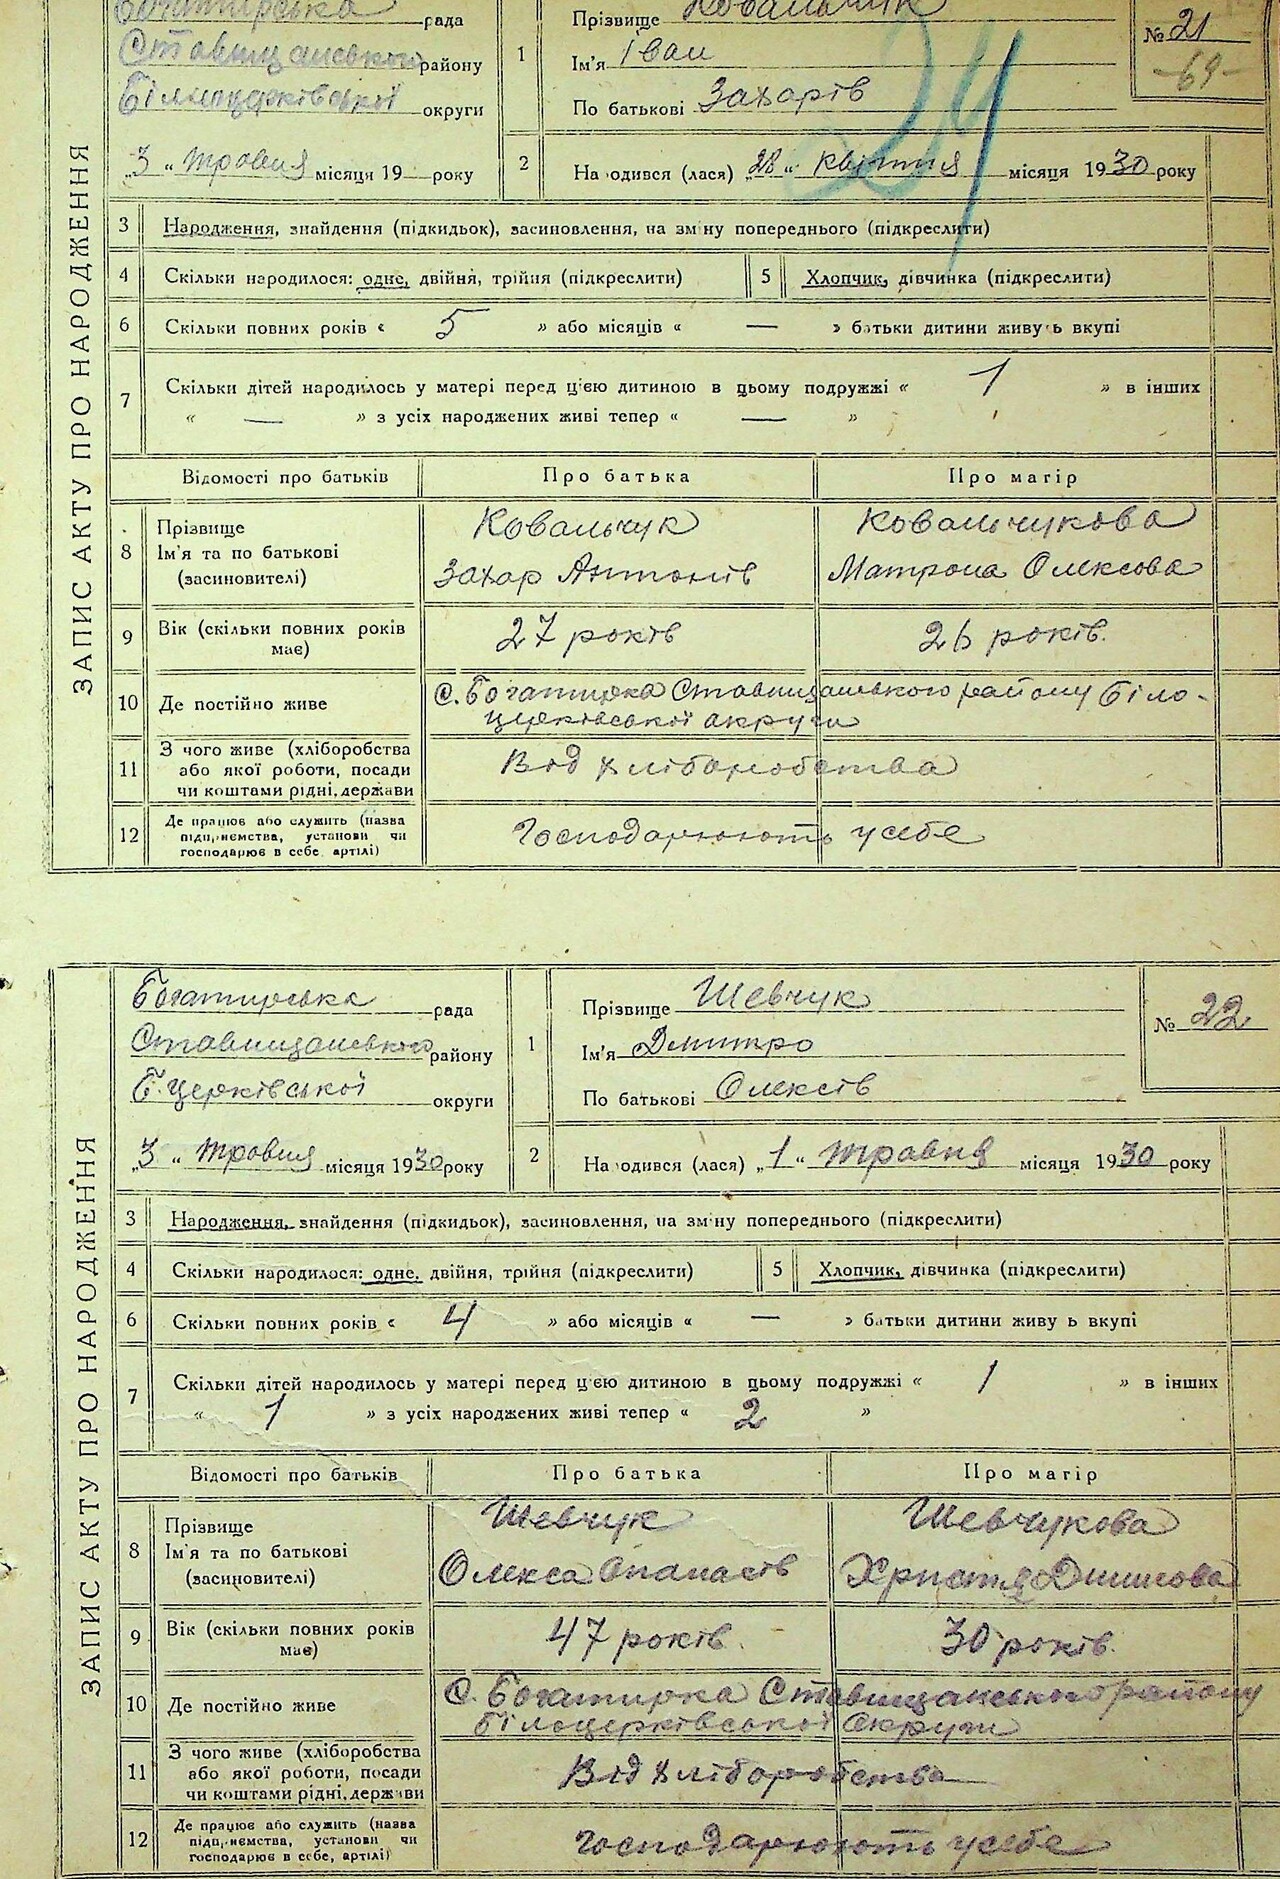 ЗАПИС АКТУ ПРО НАРОДЖЕННЯ
Богатирська рада
Ставищанського району
Білоцерківської округи
„3“ травня місяця 19 року
1 Прізвище Ковальчук
Ім'я Іван
По батькові Захарів
№ 21
-69-
24
2 На одився (лася) „28“ квітня місяця 1930 року
3 Народження, знайдення (підкидьок), засиновлення, на зм'ну попереднього (підкреслити)
4 Скільки народилося: одне, двійня, трійня (підкреслити) 5 Хлопчик, дівчинка (підкреслити)
6 Скільки повних років « 5 » або місяців « — » батьки дитини живуть вкупі
7 Скільки дітей народилось у матері перед ц'єю дитиною в цьому подружжі « 1 » в інших
« — » з усіх народжених живі тепер « — »
Відомості про батьків Про батька Про матір
8 Прізвище Ковальчук Ковальчукова
Ім'я та по батькові Захар Антонів Матрона Олексова
(засиновителі)
9 Вік (скільки повних років має) 27 років 26 років.
10 Де постійно живе С. Богатирка Ставищанського району Біло-
церківської округи
11 З чого живе (хліборобства Від хліборобства
або якої роботи, посади
чи коштами рідні, держави
12 Де працює або служить (назва Господарюють у себе
підприємства, установи чи
господарює в себе артілі)
ЗАПИС АКТУ ПРО НАРОДЖЕННЯ
Богатирська рада
Ставищанського району
Б. церківської округи
„3“ травня місяця 1930 року
1 Прізвище Шевчук
Ім'я Дмитро
По батькові Олексів
№ 22
2 На одився (лася) „1“ травня місяця 1930 року
3 Народження, знайдення (підкидьок), засиновлення, на зм'ну попереднього (підкреслити)
4 Скільки народилося: одне, двійня, трійня (підкреслити) 5 Хлопчик, дівчинка (підкреслити)
6 Скільки повних років « 4 » або місяців « — » батьки дитини живу ь вкупі
7 Скільки дітей народилось у матері перед ц'єю дитиною в цьому подружжі « 1 » в інших
« 1 » з усіх народжених живі тепер « 2 »
Відомості про батьків Про батька Про матір
8 Прізвище Шевчук Шевчукова
Ім'я та по батькові Олекса Опанасів Христя
(засиновителі)
9 Вік (скільки повних років має) 47 років. 30 років.
10 Де постійно живе С. Богатирка Ставищанського району
Білоцерківської округи
11 З чого живе (хліборобства Від хліборобства
або якої роботи, посади
чи коштами рідні, держави
12 Де працює або служить (назва Господарюють у себе
підприємства, установи чи
господарює в себе, артілі)